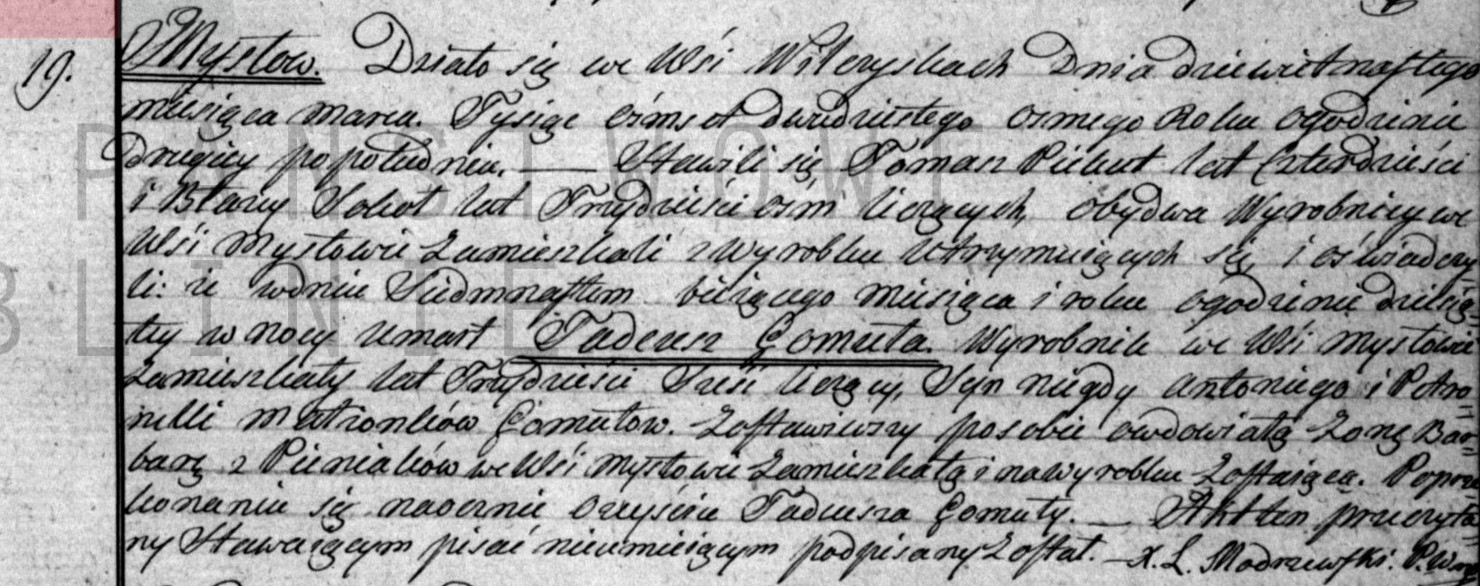 19.
Mysłow. Działo się we Wsi Wilczyskach Dnia dziewiętnastego
miesiąca marca. Tysiąc ośmset dwudziestego osmego Roku ogodzinie
drugiey popołudniu. — Stawili się Tomasz Piekut lat Czterdzieści
i Błazey Sokoł lat Trzydzieści ośm liczących, obydwa Wyrobnicy we
Wsi Mysłowie Zamieszkali z wyrobku Utrzymuiących się i oświadczy
li: iż wdniu Siedmnastem bieżącego miesiąca i roku ogodzinie dziesią-
tey w nocy umarł Tadeusz Gomuła. Wyrobnik we Wsi mysłowie
Zamieszkały lat Trzydzieści Sześć liczący, Syn niegdy antoniego i Petro=
nelli małżonków Gomułow. Zostawiwszy posobie owdowiałą Zonę Bar=
barę z Pieniaków we Wsi mysłowie Zamieszkałą i nawyrobku Zostaiącą. Poprze
konaniu się naocznie Ozeyściu Tadeusza Gomuły. — Akt ten przeczyta
ny Stawaiącym pisać nieumieiącym podpisany Został. — X. L. Modrzewski.
PAŃSTWOWE
BLINIE